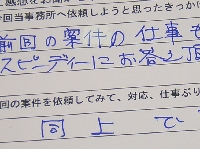 ご感想をお聞かせ
今回当事務所へ依頼しようと思ったきっか
前回の案件の仕事も
スピーディーにお答え頂
回の案件を依頼してみて、対応、仕事ぶり
同上で